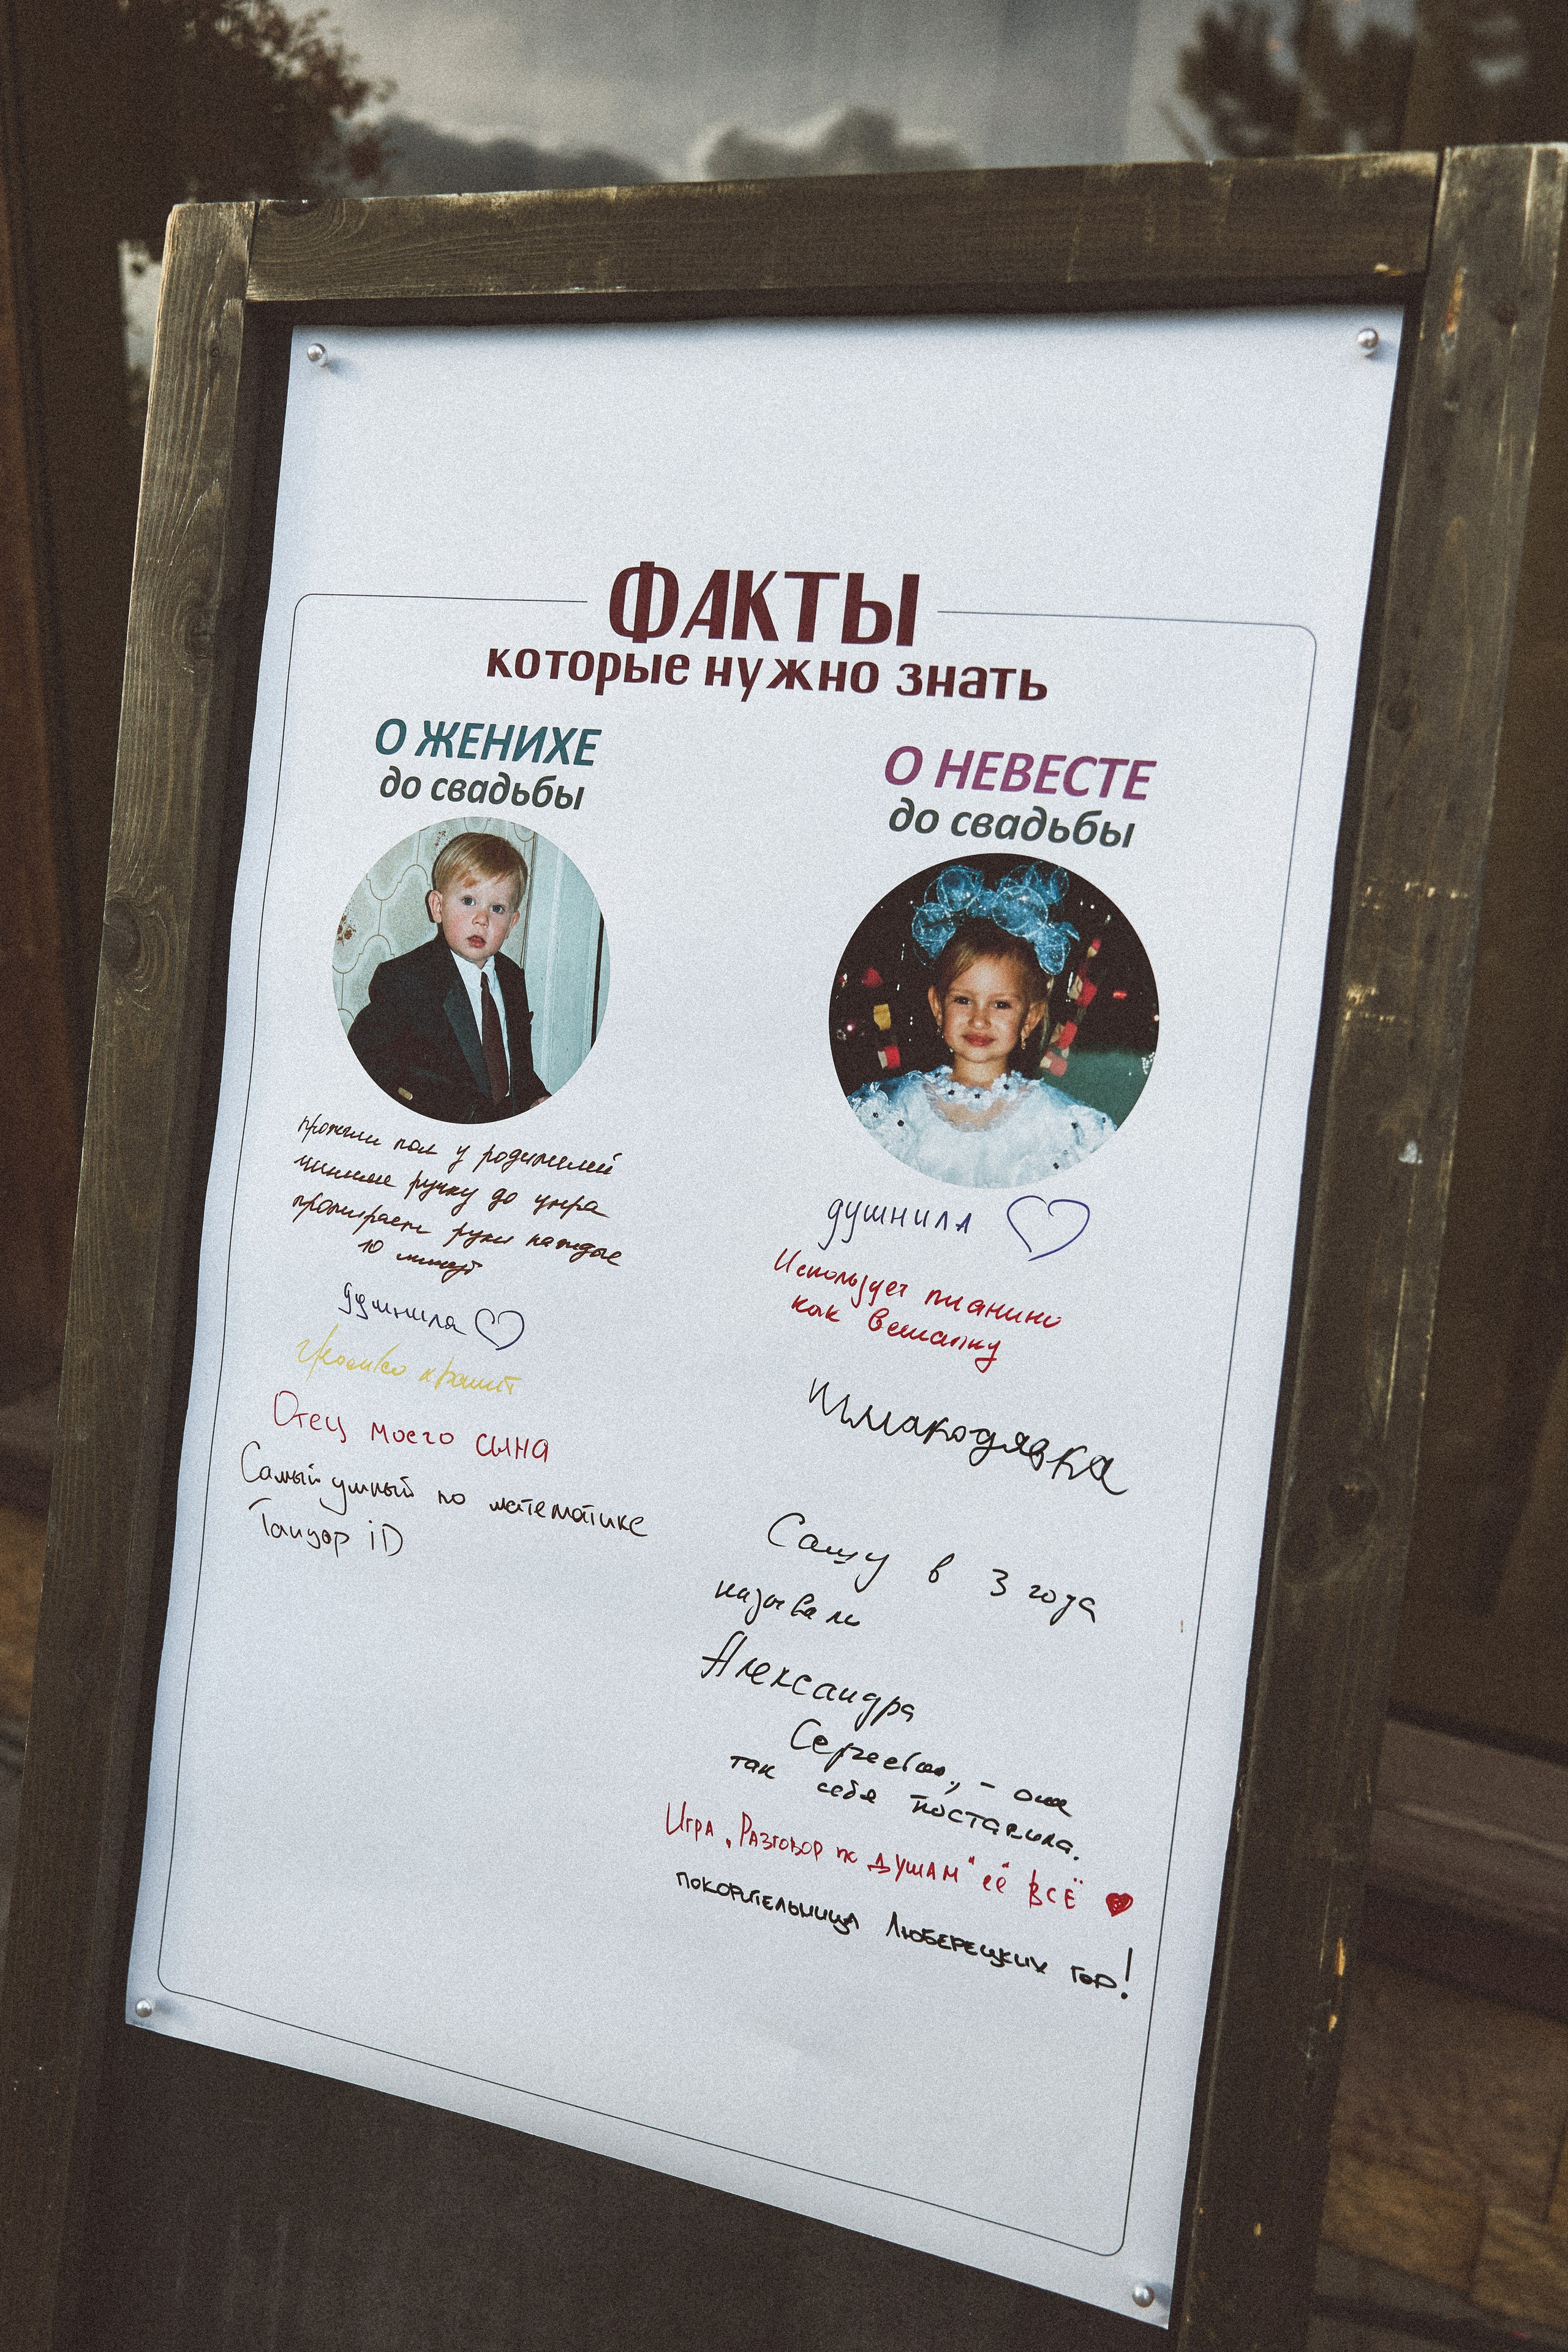 ФАКТЫ
которые нужно знать
О ЖЕНИХЕ
до свадьбы
прожгли пол у родителей
чинил ручку до утра
протирает руки каждые
10 минут
душнила
Отец моего сына
Самый умный по математике
Танцор :D
О НЕВЕСТЕ
до свадьбы
душнила
Использует пианино
как вешалку
Шмакодявка
Сашу в 3 года
называли
Александра
Сергеевна, - она
так себя поставила.
Игра „Разговор по душам" её всё
покорительница Люберецких гор!